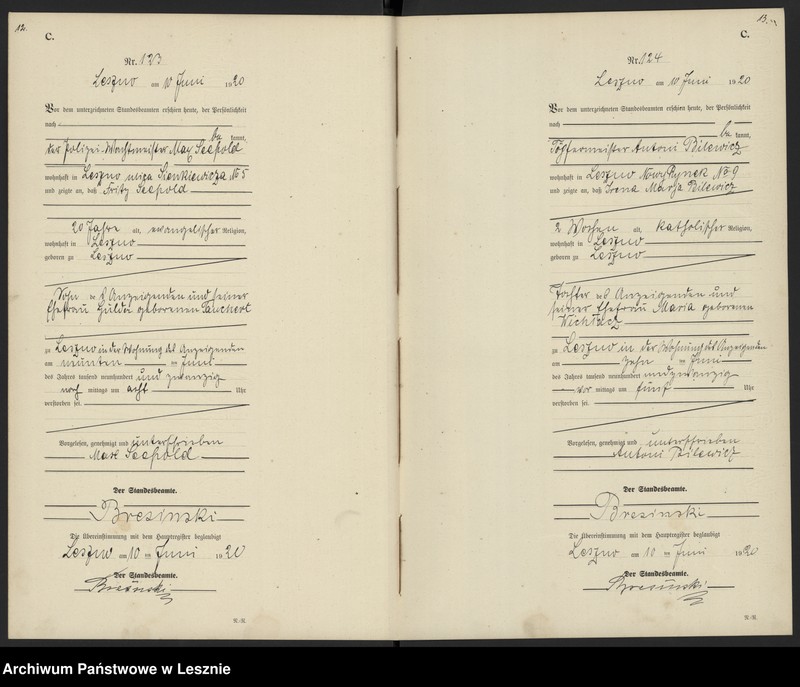 12.
C.
Nr. 123
Leszno am 10 Juni 1920
Vor dem unterzeichneten Standesbeamten erschien heute, der Persönlichkeit
nach
be kannt,
der Polizei-Wachtmeister Max Seepold
wohnhaft in Leszno ulica Sienkiewicza № 5
und zeigte an, daß Fritz Seepold
20 Jahre alt, evangelischer Religion,
wohnhaft in Leszno
geboren zu Leszno
Sohn des Anzeigenden und seiner
Ehefrau Hulda geborenen
zu Leszno in der Wohnung des Anzeigenden
am neunten ten Juni
des Jahres tausend neunhundert und zwanzig
nach mittags um acht Uhr
verstorben sei.
Vorgelesen, genehmigt und unterschrieben
Max Seepold
Der Standesbeamte.
Bresinski
Die Übereinstimmung mit dem Hauptregister beglaubigt
Leszno am 10 ten Juni 1920
Der Standesbeamte.
Bresinski
R.-R.
13.
C.
Nr. 124
Leszno am 10 Juni 1920
Vor dem unterzeichneten Standesbeamten erschien heute, der Persönlichkeit
nach
be kannt,
Töpfermeister Antoni Bilewicz
wohnhaft in Leszno Nowy Rynek № 9
und zeigte an, daß Irena Marja Bilewicz
2 Wochen alt, katholischer Religion,
wohnhaft in Leszno
geboren zu Leszno
Tochter des Anzeigenden und
seiner Ehefrau Maria geborenen
zu Leszno in der Wohnung des Anzeigenden
am zehn ten Juni
des Jahres tausend neunhundert und zwanzig
vor mittags um fünf Uhr
verstorben sei.
Vorgelesen, genehmigt und unterschrieben
Antoni Bilewicz
Der Standesbeamte.
Bresinski
Die Übereinstimmung mit dem Hauptregister beglaubigt
Leszno am 10 ten Juni 1920
Der Standesbeamte.
Bresinski
R.-R.
Archiwum Państwowe w Lesznie